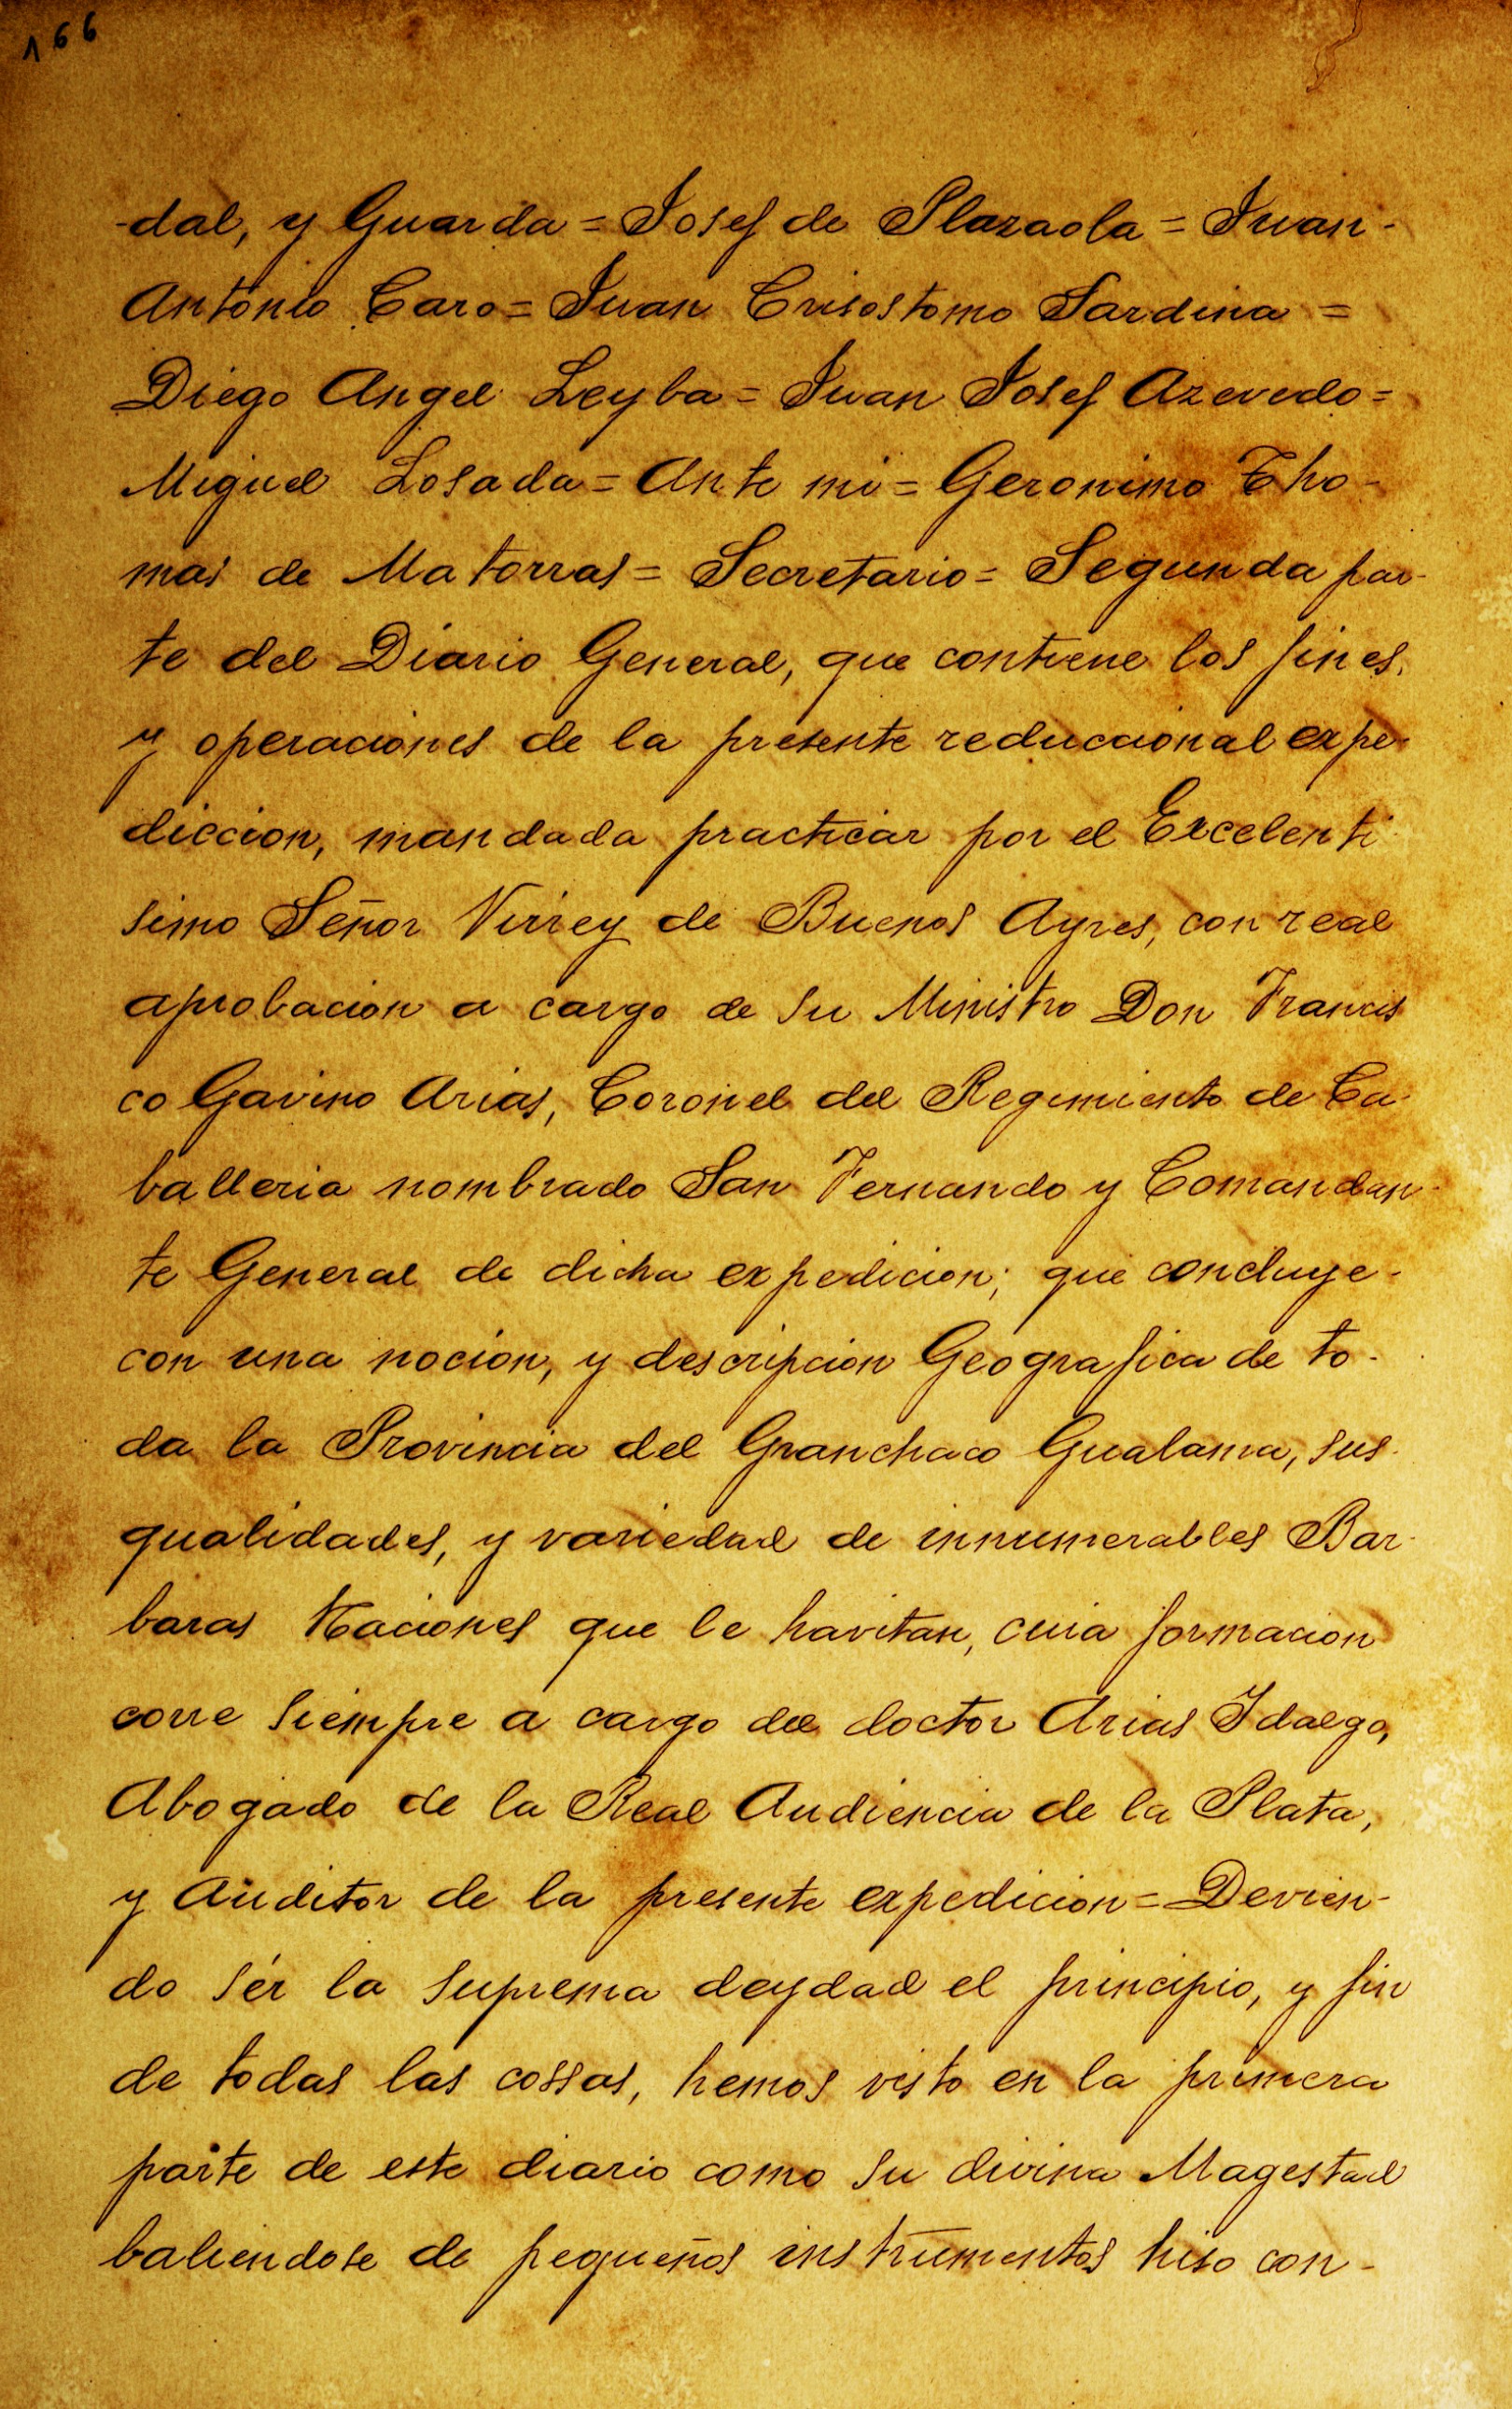 166
-dal, y Guarda = Josef de Plazaola = Juan-
Antonio Caro = Juan Crisostomo Sardina =
Diego Angel Leyba = Juan Josef Azevedo =
Miguel Losada = Ante mi = Geronimo Tho-
mas de Matorras = Secretario = Segunda par-
te del Diario General, que contiene los fines,
y operaciones de la presente reduccional expe-
diccion, mandada practicar por el Excelenti
simo Señor Virrey de Buenos Ayres, con real
aprobacion a cargo de su Ministro Don Francis
co Gavino Arias, Coronel del Regimiento de Ca-
balleria nombrado San Fernando y Comandan-
te General de dicha expedicion; que concluye-
con una nocion, y descripcion Geografica de to-
da la Provincia del Granchaco Gualama, sus-
qualidades, y variedad de innumerables Bar-
baras Naciones que le havitan, cuia formacion
corre siempre a cargo del doctor Arias Idalgo,
Abogado de la Real Audiencia de la Plata,
y Auditor de la presente expedicion = Devien-
do sér la suprema deydad el principio, y fin
de todas las cossas, hemos visto en la primera
parte de este diario como su divina Magestad
baliendose de pequeños instrumentos hiso con-